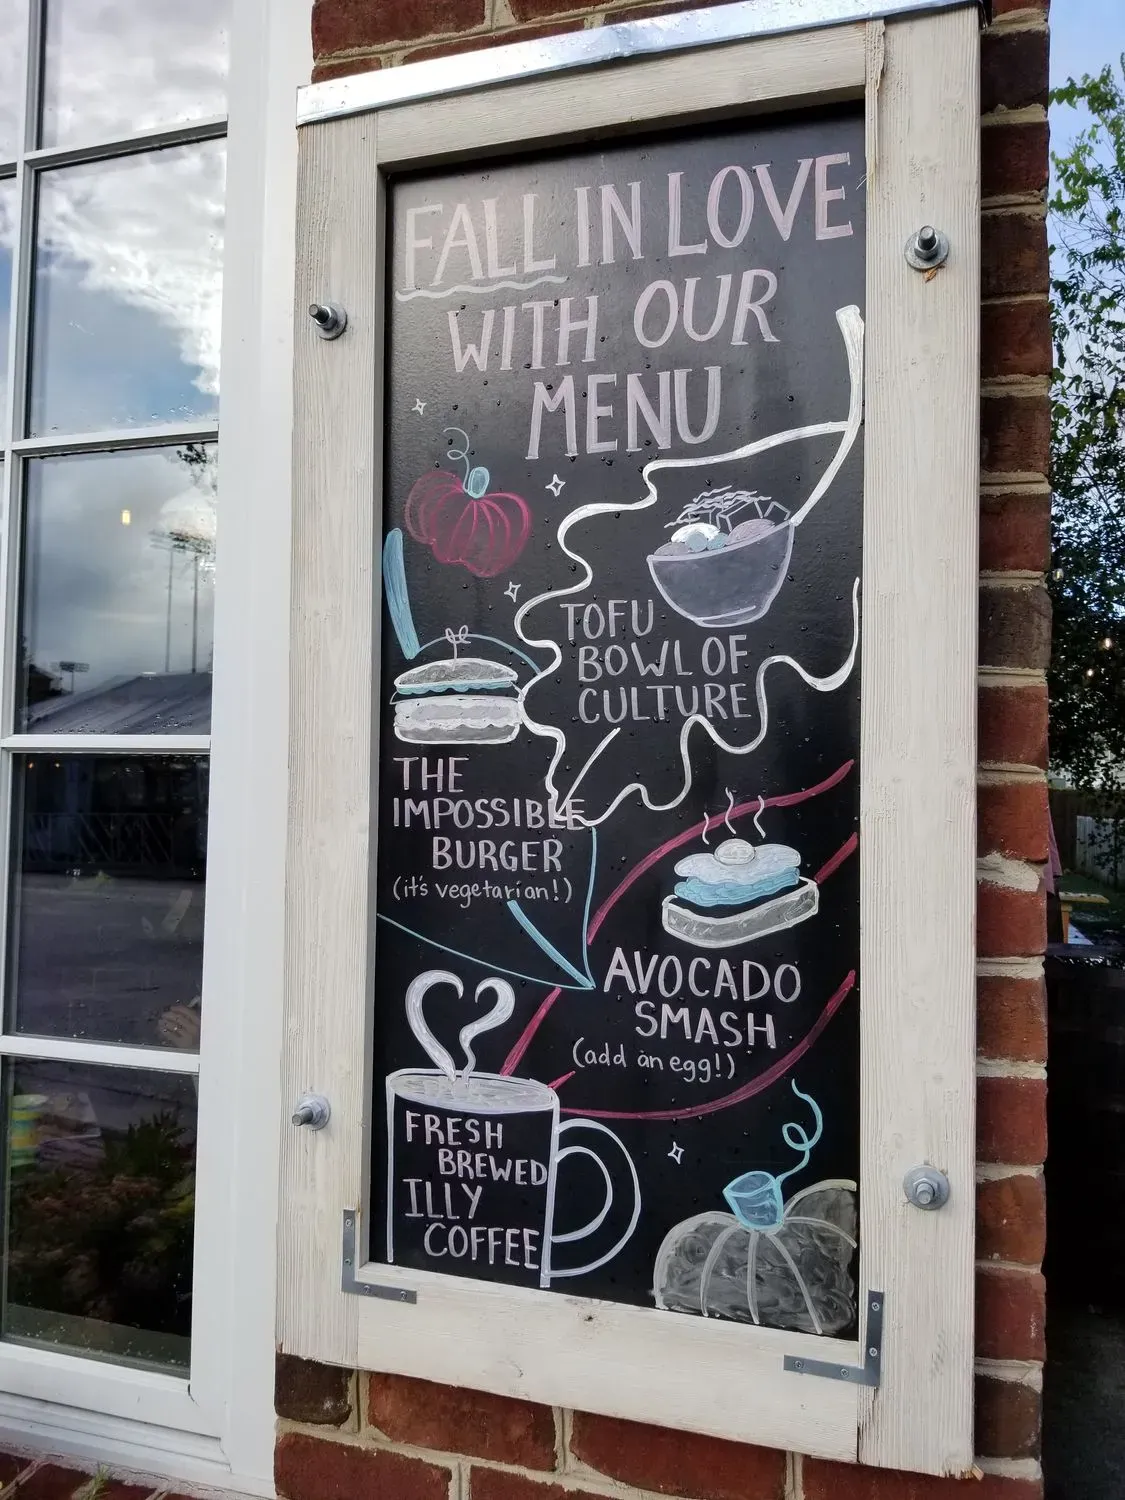 FALL IN LOVE
WITH OUR
MENU
TOFU
BOWL OF
CULTURE
THE
IMPOSSIBLE
BURGER
(it's vegetarian!)
AVOCADO
SMASH
(add an egg!)
FRESH
BREWED
ILLY
COFFEE